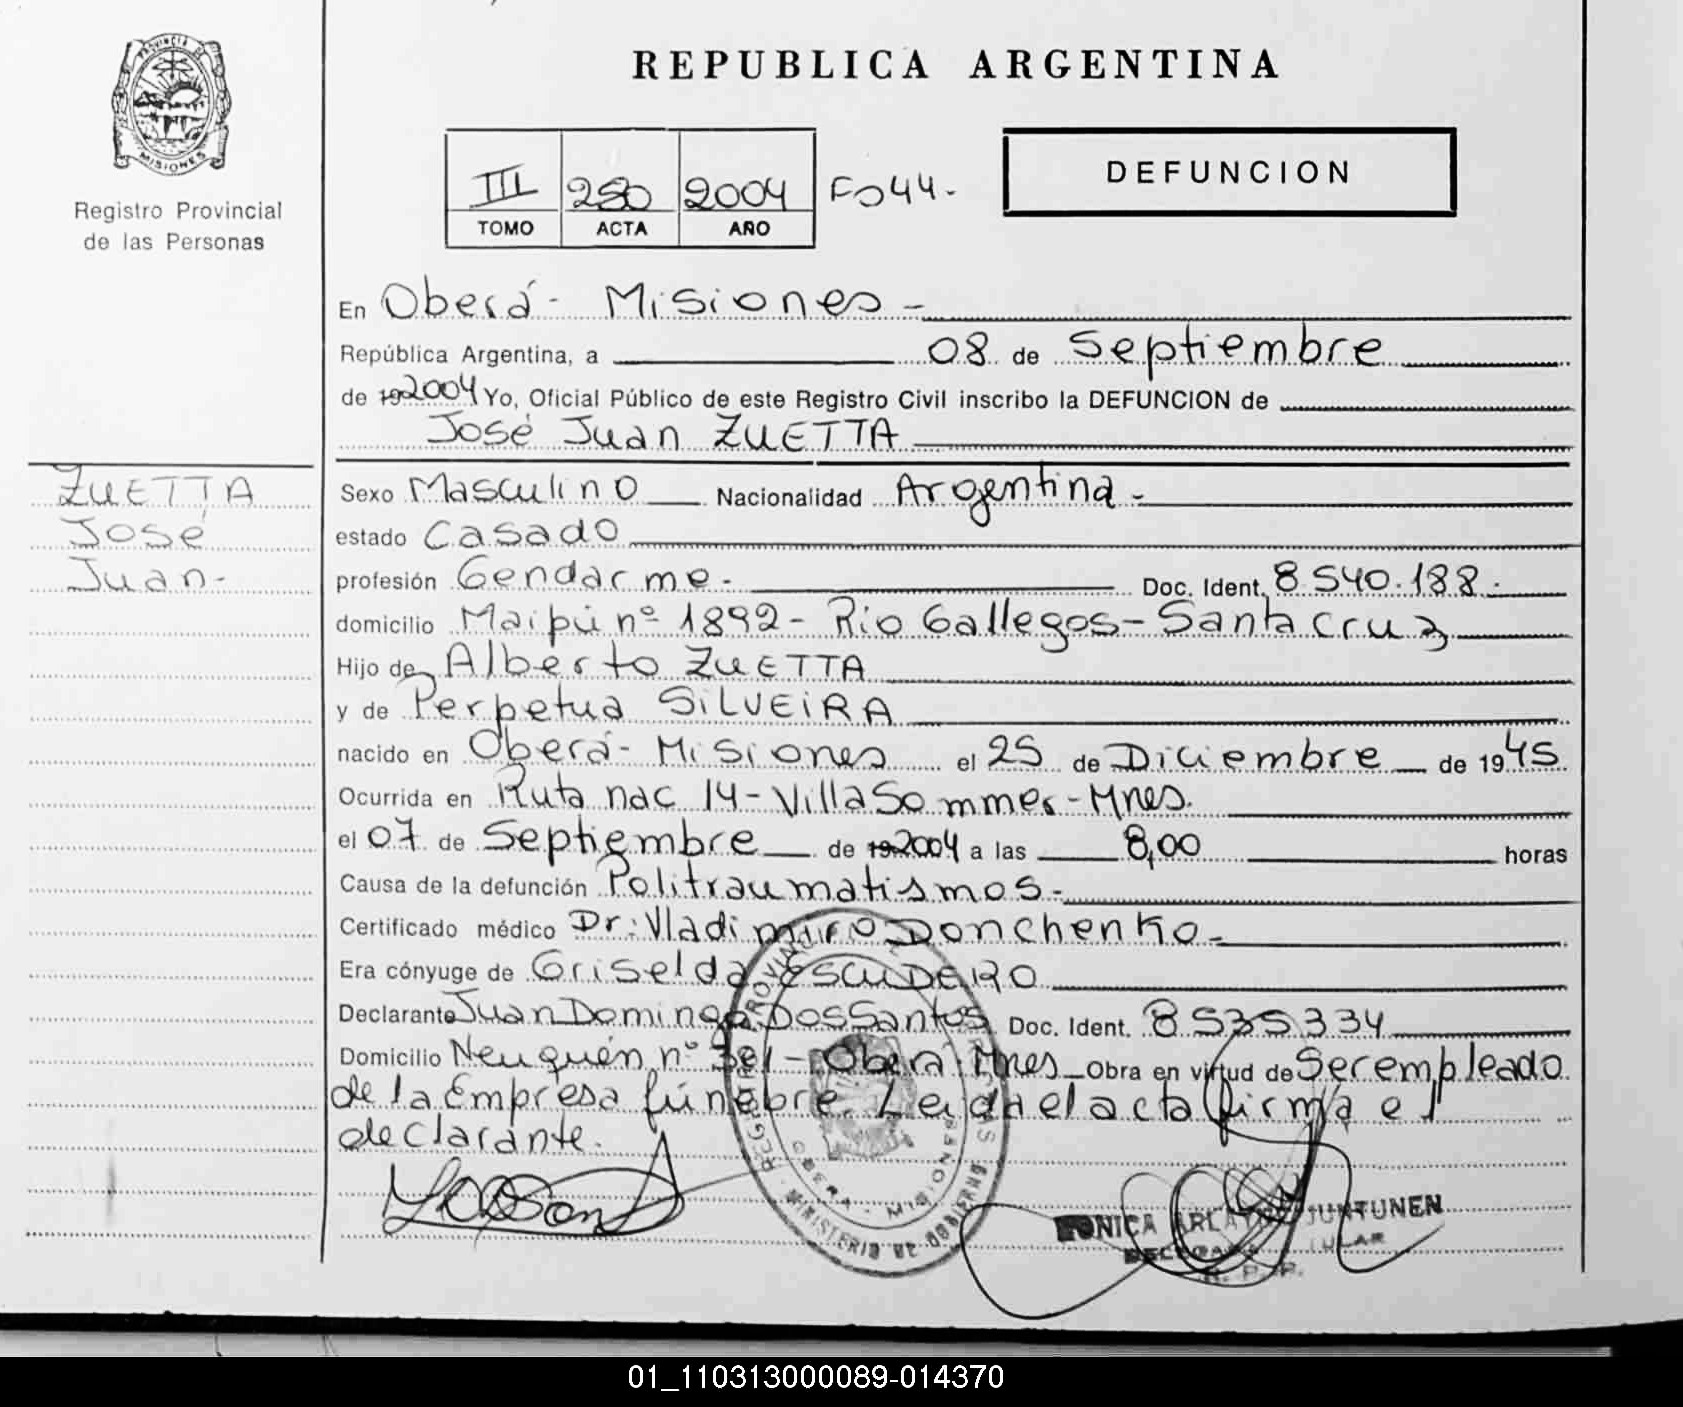 PROVINCIA DE
MISIONES
Registro Provincial
de las Personas
REPUBLICA ARGENTINA
III 250 2004 Fo 44.-
TOMO ACTA AÑO
DEFUNCION
En Oberá - Misiones -
República Argentina, a 08 de Septiembre
de 19 2004 Yo, Oficial Público de este Registro Civil inscribo la DEFUNCION de
José Juan ZUETTA
ZUETTA
José
Juan-
Sexo Masculino Nacionalidad Argentina -
estado Casado
profesión Gendarme - Doc. Ident. 8.540.188.-
domicilio Maipú nº 1892 - Rio Gallegos - Santa Cruz
Hijo de Alberto ZUETTA
y de Perpetua SILVEIRA
nacido en Oberá - Misiones el 25 de Diciembre de 1945
Ocurrida en Ruta nac 14 - Villa Sommer - Mnes.
el 07 de Septiembre de 19 2004 a las 8,00 horas
Causa de la defunción Politraumatismos.-
Certificado médico Dr: Vladimiro Donchenko.-
Era cónyuge de Griselda ESCUDERO
Declarante Juan Domingo Dos Santos Doc. Ident. 8535334
Domicilio Neuquén nº 301 - Oberá - Mnes Obra en virtud de Ser empleado
de la Empresa fúnebre. Leida el acta firma el
declarante.
OBERA - MISIONES
MINISTERIO DE GOBIERNO
MONICA JUNTUNEN
R. P. P.
01_110313000089-014370